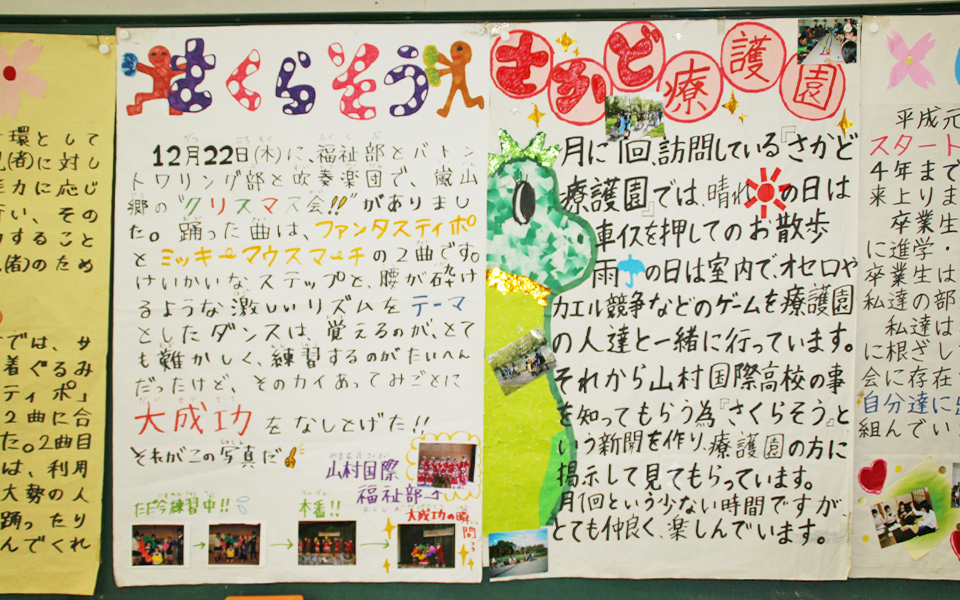 環として
(者)に対し
力に応じ
い、その
すること
(者)のため
では、サ
着ぐるみ
ティポ」
2曲に合
た。2曲目
は、利用
大勢の人
踊ったり
んでくれ
さくらそう
12月22日(木)に、福祉部とバトン
トワリング部と吹奏楽団で、嵐山
郷の"クリスマス会!!"がありまし
た。踊った曲は、ファンタスティポ
とミッキーマウスマーチの2曲です。
けいかいなステップと腰が砕け
るような激しいリズムをテーマ
としたダンスは、覚えるのが、とて
も難かしく、練習するのがたいへん
だったけど、そのカイあってみごとに
大成功をなしとげた!!
それがこの写真だ
山村国際
福祉部→
ただ今練習中!!
本番!!
大成功の瞬
間っ
さかど療護園
月に1回、訪問している『さかど
療護園』では、晴れの日は
車イスを押してのお散歩
雨の日は室内で、オセロや
カエル競争などのゲームを療護園
の人達と一緒に行っています。
それから山村国際高校の事
を知ってもらう為『さくらそう』と
いう新聞を作り、療護園の方に
掲示して見てもらっています。
月1回という少ない時間ですが
とても仲良く、楽しんでいます。
平成元
スタート
4年まで
来上りま
卒業生
に進学・
卒業生は
私達の部
私達は
に根ざし
会に存在
自分達に
組んでい